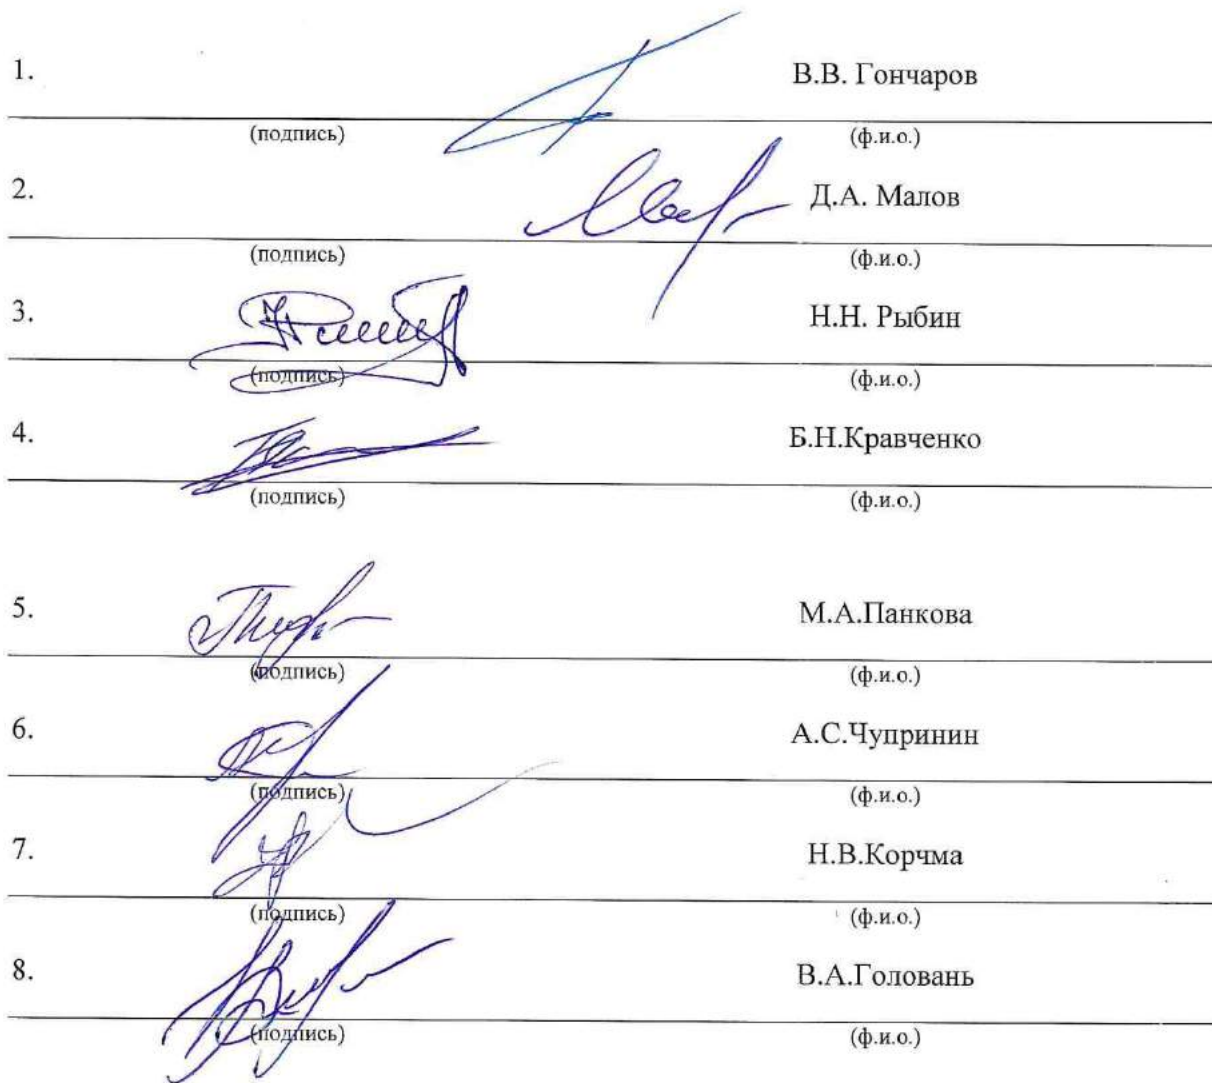 1. В.В. Гончаров
(подпись) (ф.и.о.)
2. Д.А. Малов
(подпись) (ф.и.о.)
3. Н.Н. Рыбин
(подпись) (ф.и.о.)
4. Б.Н.Кравченко
(подпись) (ф.и.о.)
5. М.А.Панкова
(подпись) (ф.и.о.)
6. А.С.Чупринин
(подпись) (ф.и.о.)
7. Н.В.Корчма
(подпись) (ф.и.о.)
8. В.А.Головань
(подпись) (ф.и.о.)